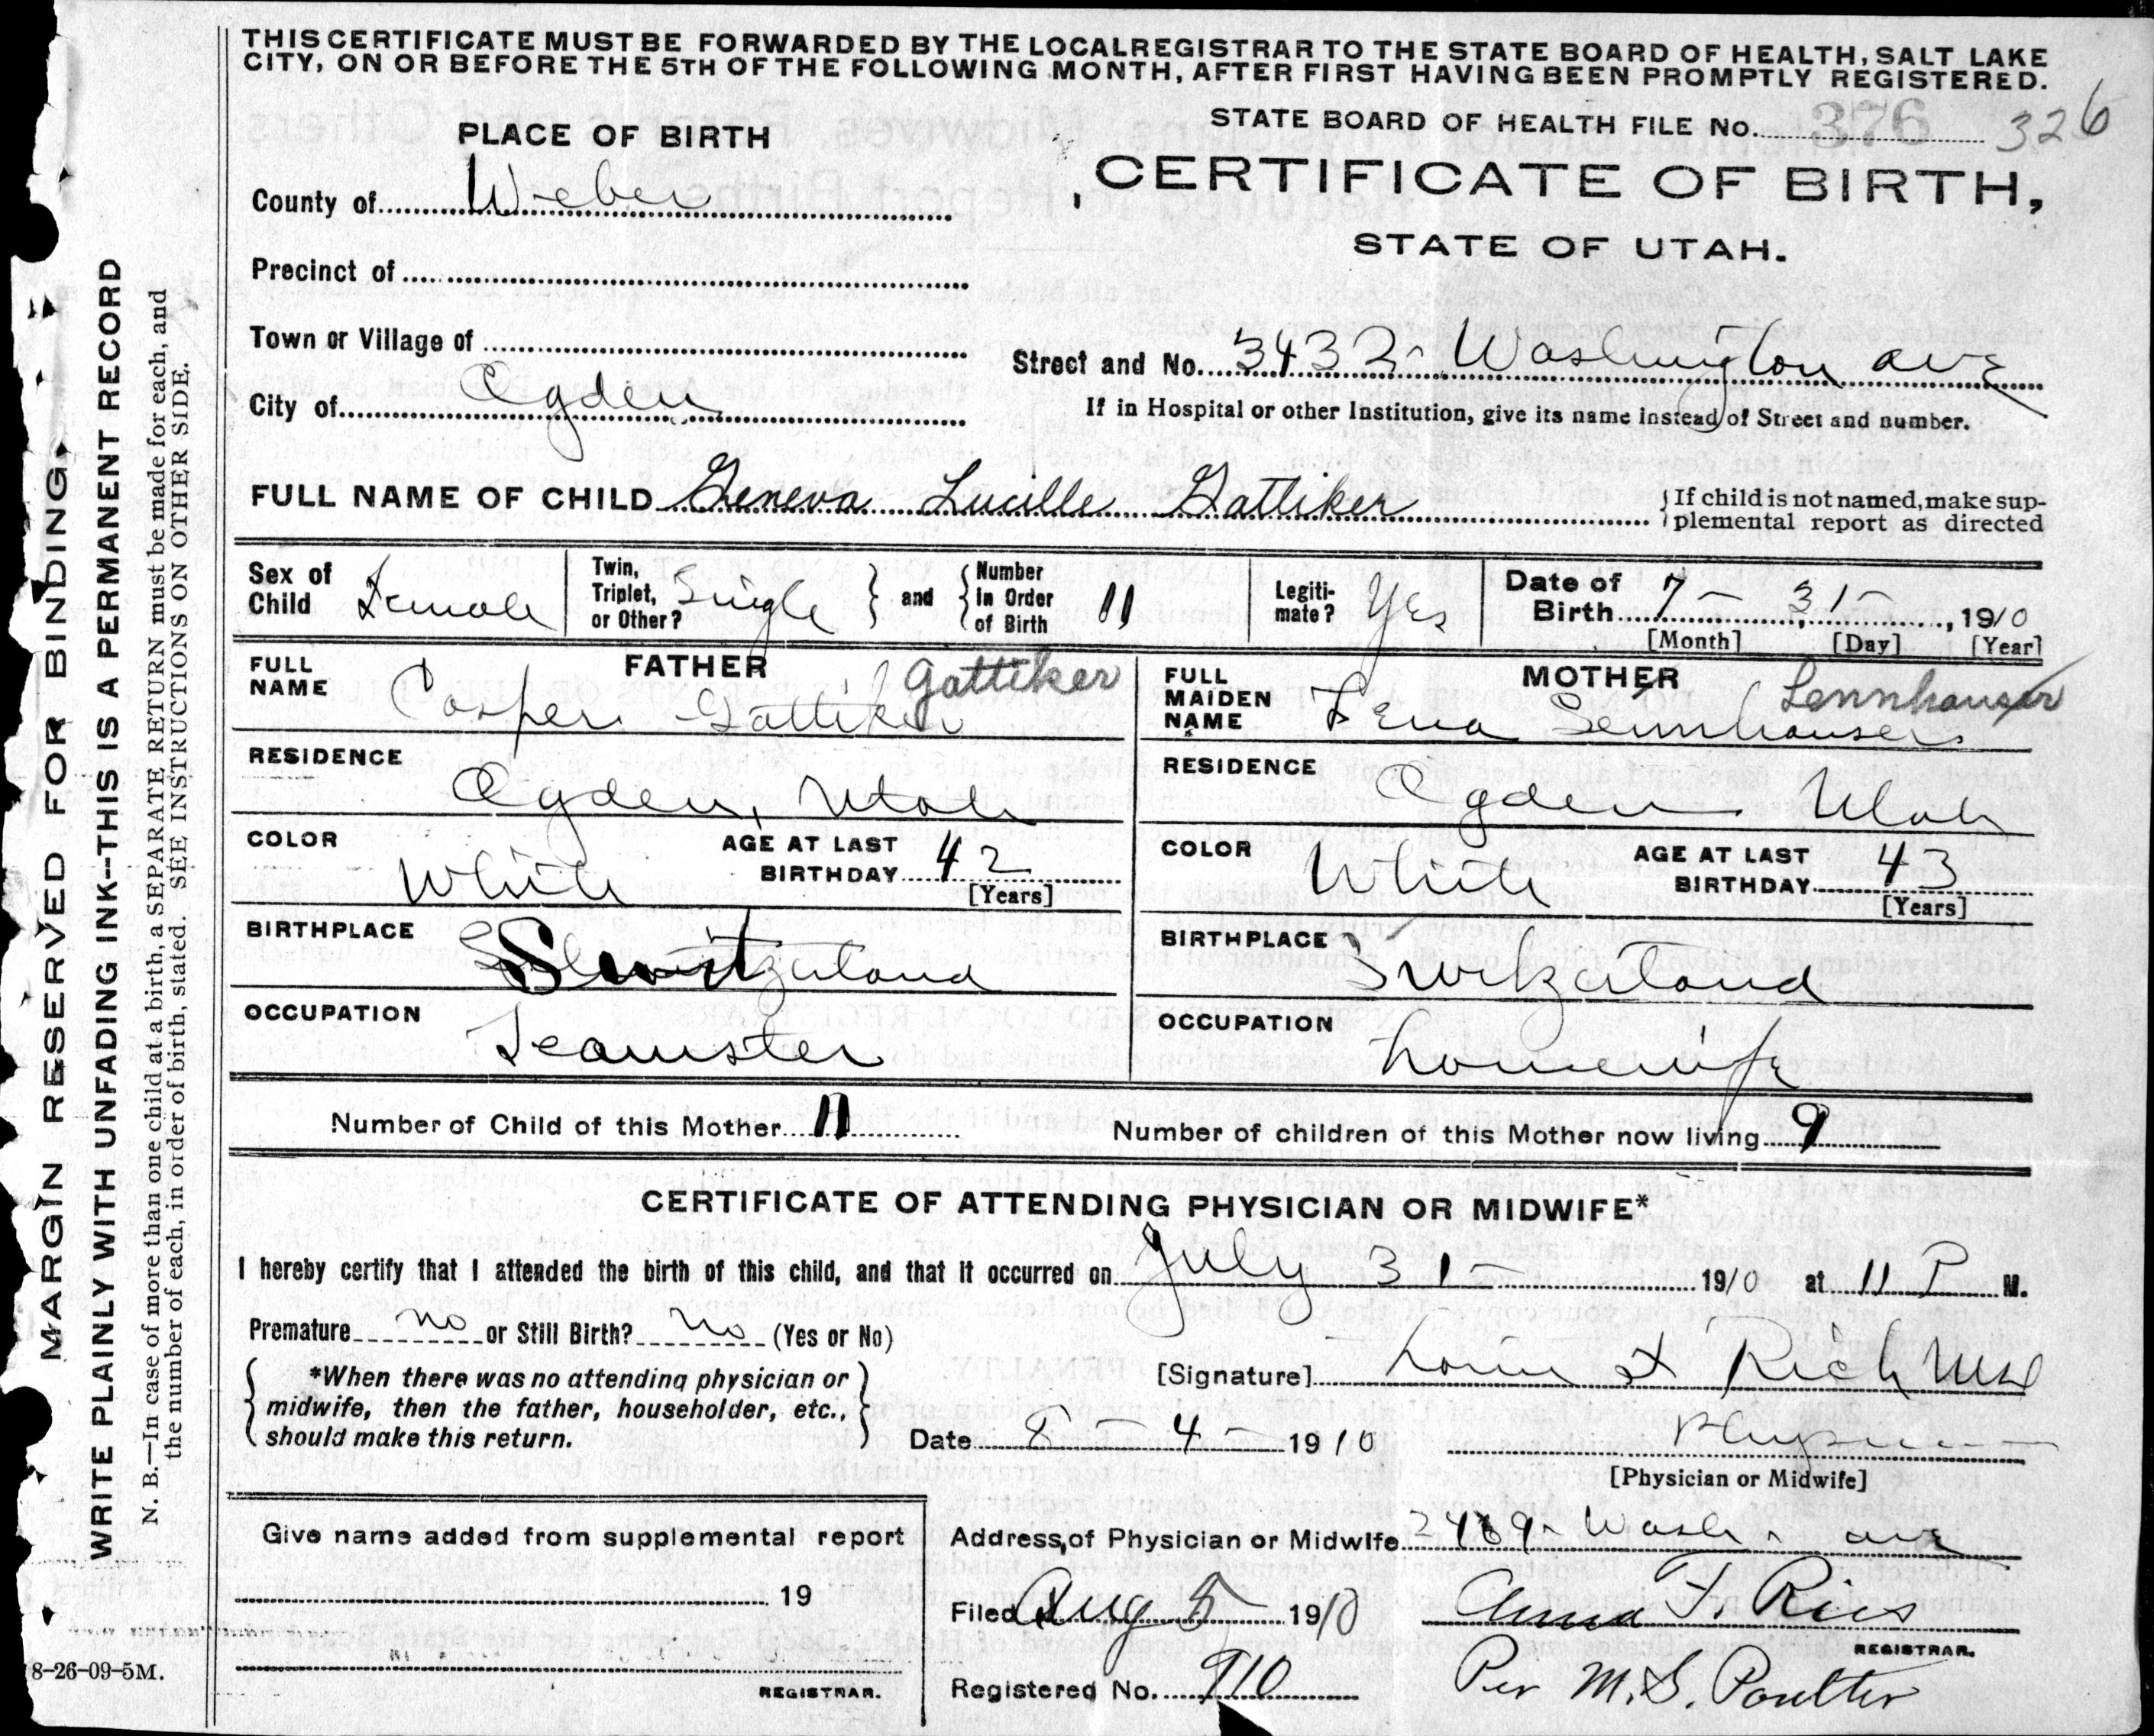 THIS CERTIFICATE MUST BE FORWARDED BY THE LOCAL REGISTRAR TO THE STATE BOARD OF HEALTH, SALT LAKE
CITY, ON OR BEFORE THE 5TH OF THE FOLLOWING MONTH, AFTER FIRST HAVING BEEN PROMPTLY REGISTERED.
STATE BOARD OF HEALTH FILE No. 376 326
PLACE OF BIRTH
CERTIFICATE OF BIRTH,
STATE OF UTAH.
County of Weber
Precinct of
Town or Village of
City of Ogden
Street and No. 3432 Washington ave
If in Hospital or other Institution, give its name instead of Street and number.
FULL NAME OF CHILD Geneva Lucille Gattiker
{If child is not named, make sup-
plemental report as directed
Sex of Child Female
Twin, Triplet, or Other? Single } and { Number In Order of Birth 11
Legiti-mate? Yes
Date of Birth 7 - 31 - , 1910
[Month] [Day] [Year]
FATHER
FULL NAME Casper Gattiker Gattiker
RESIDENCE Ogden, Utah
COLOR White AGE AT LAST BIRTHDAY 42
[Years]
BIRTHPLACE Switzerland
OCCUPATION Teamster
MOTHER
FULL MAIDEN NAME Lena Sennhauser Sennhauser
RESIDENCE Ogden Utah
COLOR White AGE AT LAST BIRTHDAY 43
[Years]
BIRTHPLACE Switzerland
OCCUPATION housewife
Number of Child of this Mother 11
Number of children of this Mother now living 9
CERTIFICATE OF ATTENDING PHYSICIAN OR MIDWIFE*
I hereby certify that I attended the birth of this child, and that it occurred on July 31 - 1910 at 11 P M.
Premature no or Still Birth? no (Yes or No)
{ *When there was no attending physician or
midwife, then the father, householder, etc.,
should make this return. }
[Signature] Rich MD
Date 8 - 4 - 1910
[Physician or Midwife]
Give name added from supplemental report
19
REGISTRAR.
Address, of Physician or Midwife Wash - ave
Filed Aug 5 1910 Anna F. Ries
REGISTRAR.
Registered No. 910 Per M. S. Poulter
8-26-09-5M.
MARGIN RESERVED FOR BINDING.
WRITE PLAINLY WITH UNFADING INK--THIS IS A PERMANENT RECORD
N. B.—In case of more than one child at a birth, a SEPARATE RETURN must be made for each, and
the number of each, in order of birth, stated. SEE INSTRUCTIONS ON OTHER SIDE.